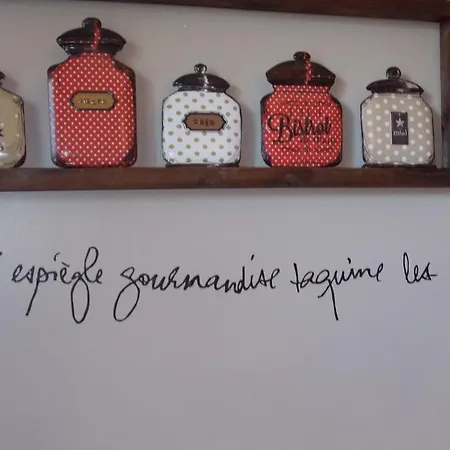 Bistrot
Miel
espiègle gourmandise taquine les